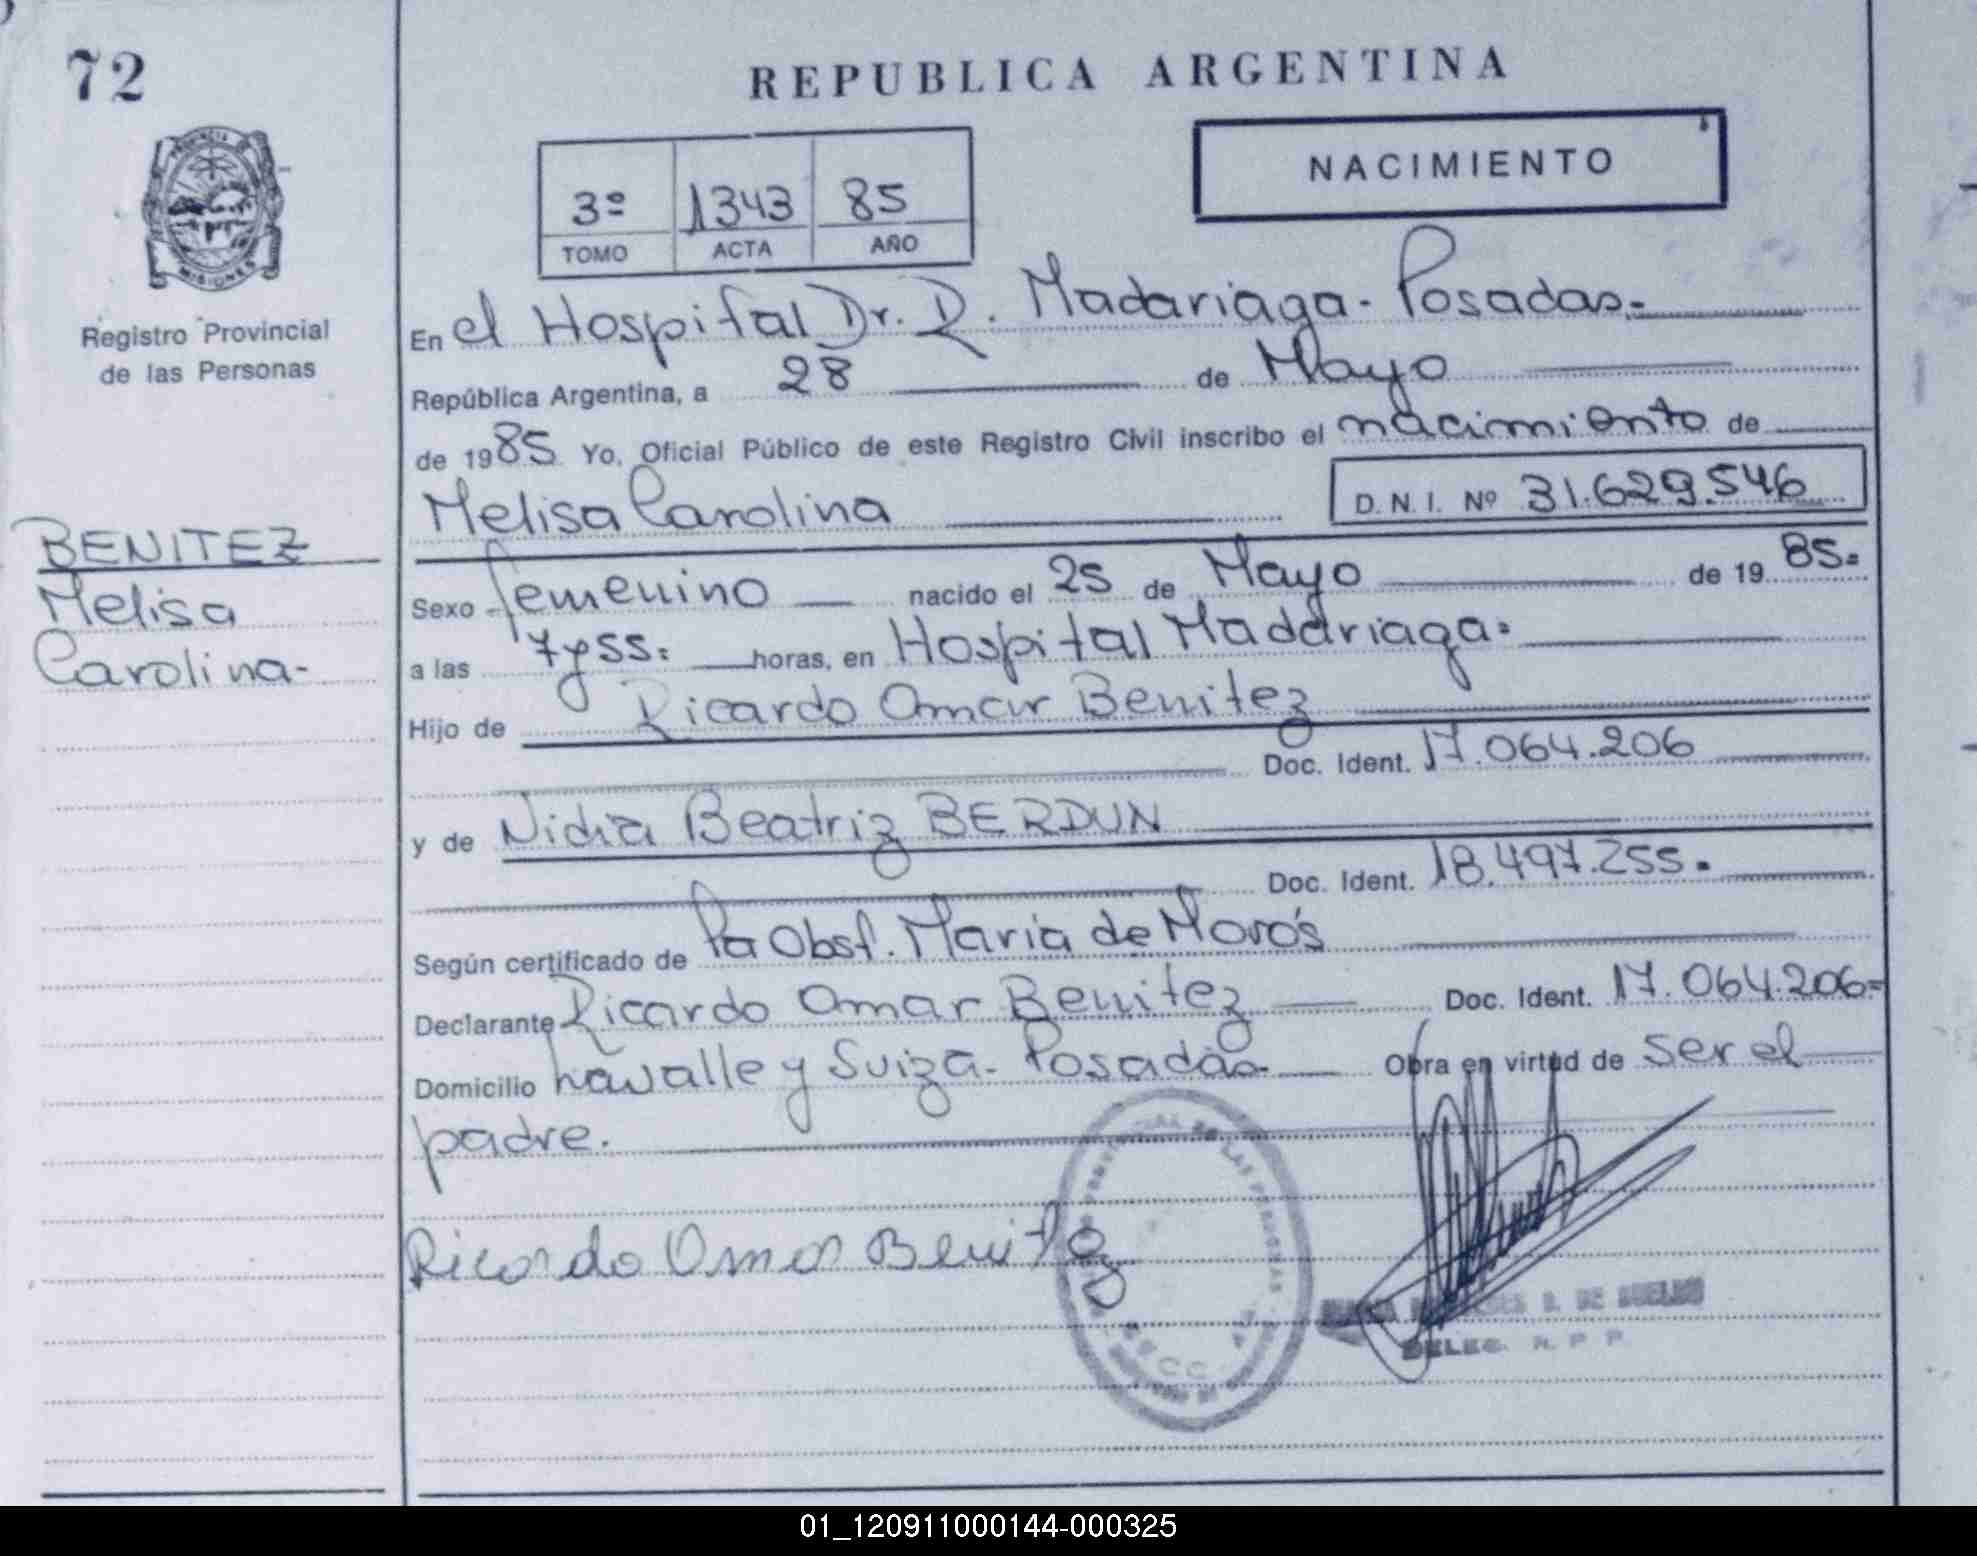 72
REPUBLICA ARGENTINA
NACIMIENTO
3º 1343 85
TOMO ACTA AÑO
PROVINCIA
MISIONES
Registro Provincial
de las Personas
BENITEZ
Melisa
Carolina-
En el Hospital Dr. R. Madariaga- Posadas.-
República Argentina, a 28 de Mayo
de 1985 Yo, Oficial Público de este Registro Civil inscribo el nacimiento de
Melisa Carolina D.N.I. Nº 31.629.546
Sexo femenino nacido el 25 de Mayo de 1985=
a las 7y55: horas, en Hospital Madariaga=
Hijo de Ricardo Omar Benitez
Doc. Ident. 17.064.206
y de Nidia Beatriz BERDUN
Doc. Ident. 18.497.255.
Según certificado de la Obst. Maria de
Declarante Ricardo Omar Benitez Doc. Ident. 17.064.206=
Domicilio Lavalle y Suiza- Posadas Obra en virtud de ser el
padre.
Ricardo Omar Benitez
DE LAS PERSONAS
DELEG. R. P. P.
01_120911000144-000325